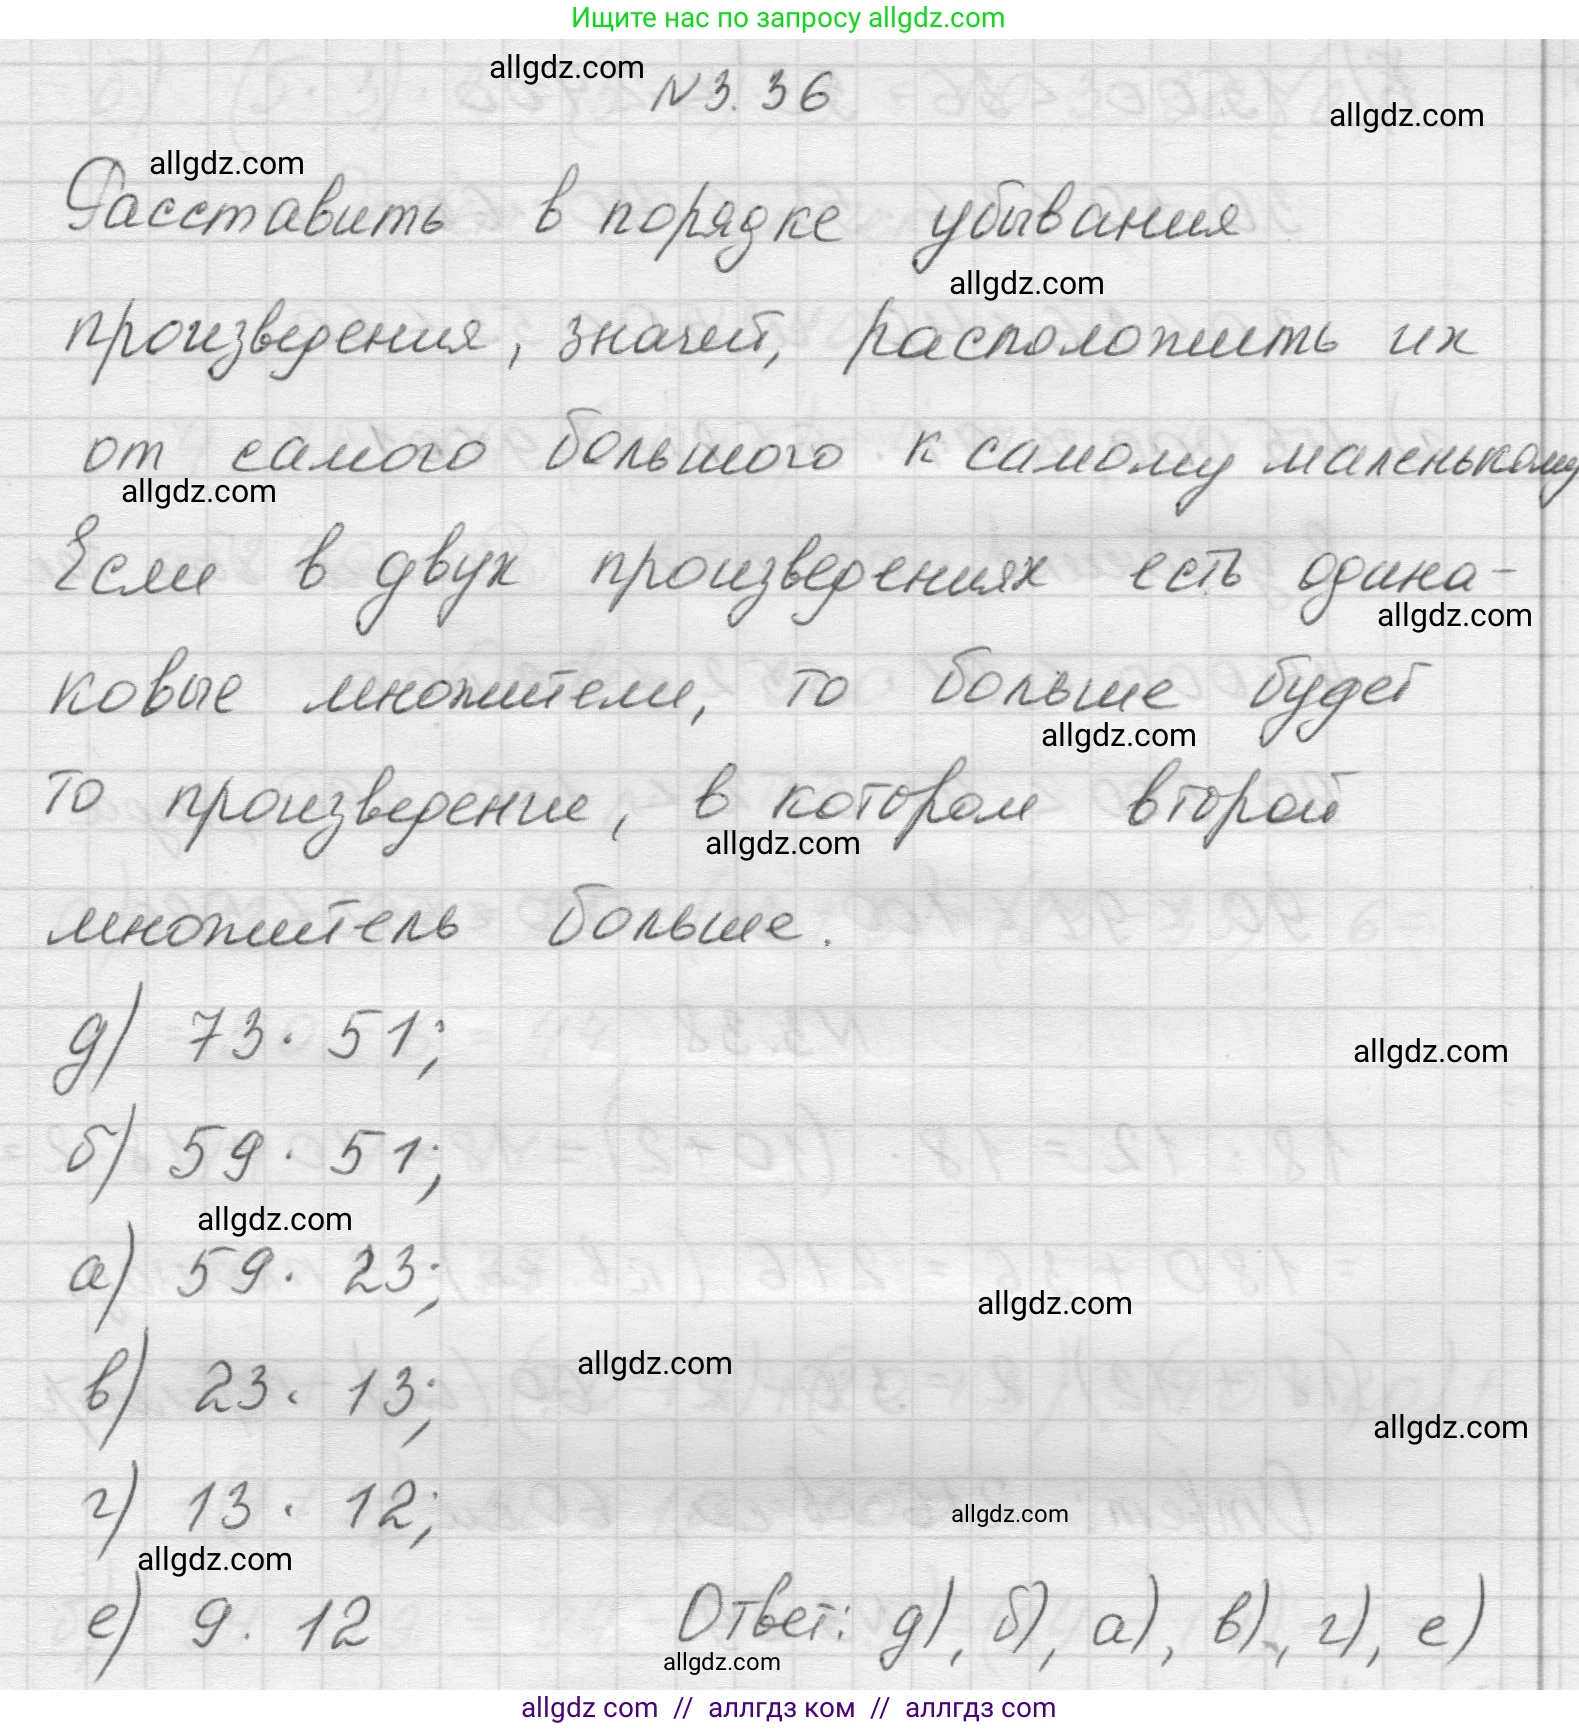 Ищите нас по запросу allgdz.com
allgdz.com
N 3.36
allgdz.com
allgdz.com
Расставить в порядке убывания
allgdz.com
произведения, значит, расположить их
от самого большого к самому маленькому
allgdz.com
Если в двух произведениях есть одина-
allgdz.com
ковые множители, то больше будет
allgdz.com
то произведение, в котором второй
allgdz.com
множитель больше.
д) 73 · 51;
allgdz.com
б) 59 · 51;
allgdz.com
а) 59 · 23;
allgdz.com
allgdz.com
в) 23 · 13;
allgdz.com
г) 13 · 12;
allgdz.com
allgdz.com
е) 9 · 12 Ответ: д), б), а), в), г), е)
allgdz.com
allgdz com // аллгдз ком // аллгдз com